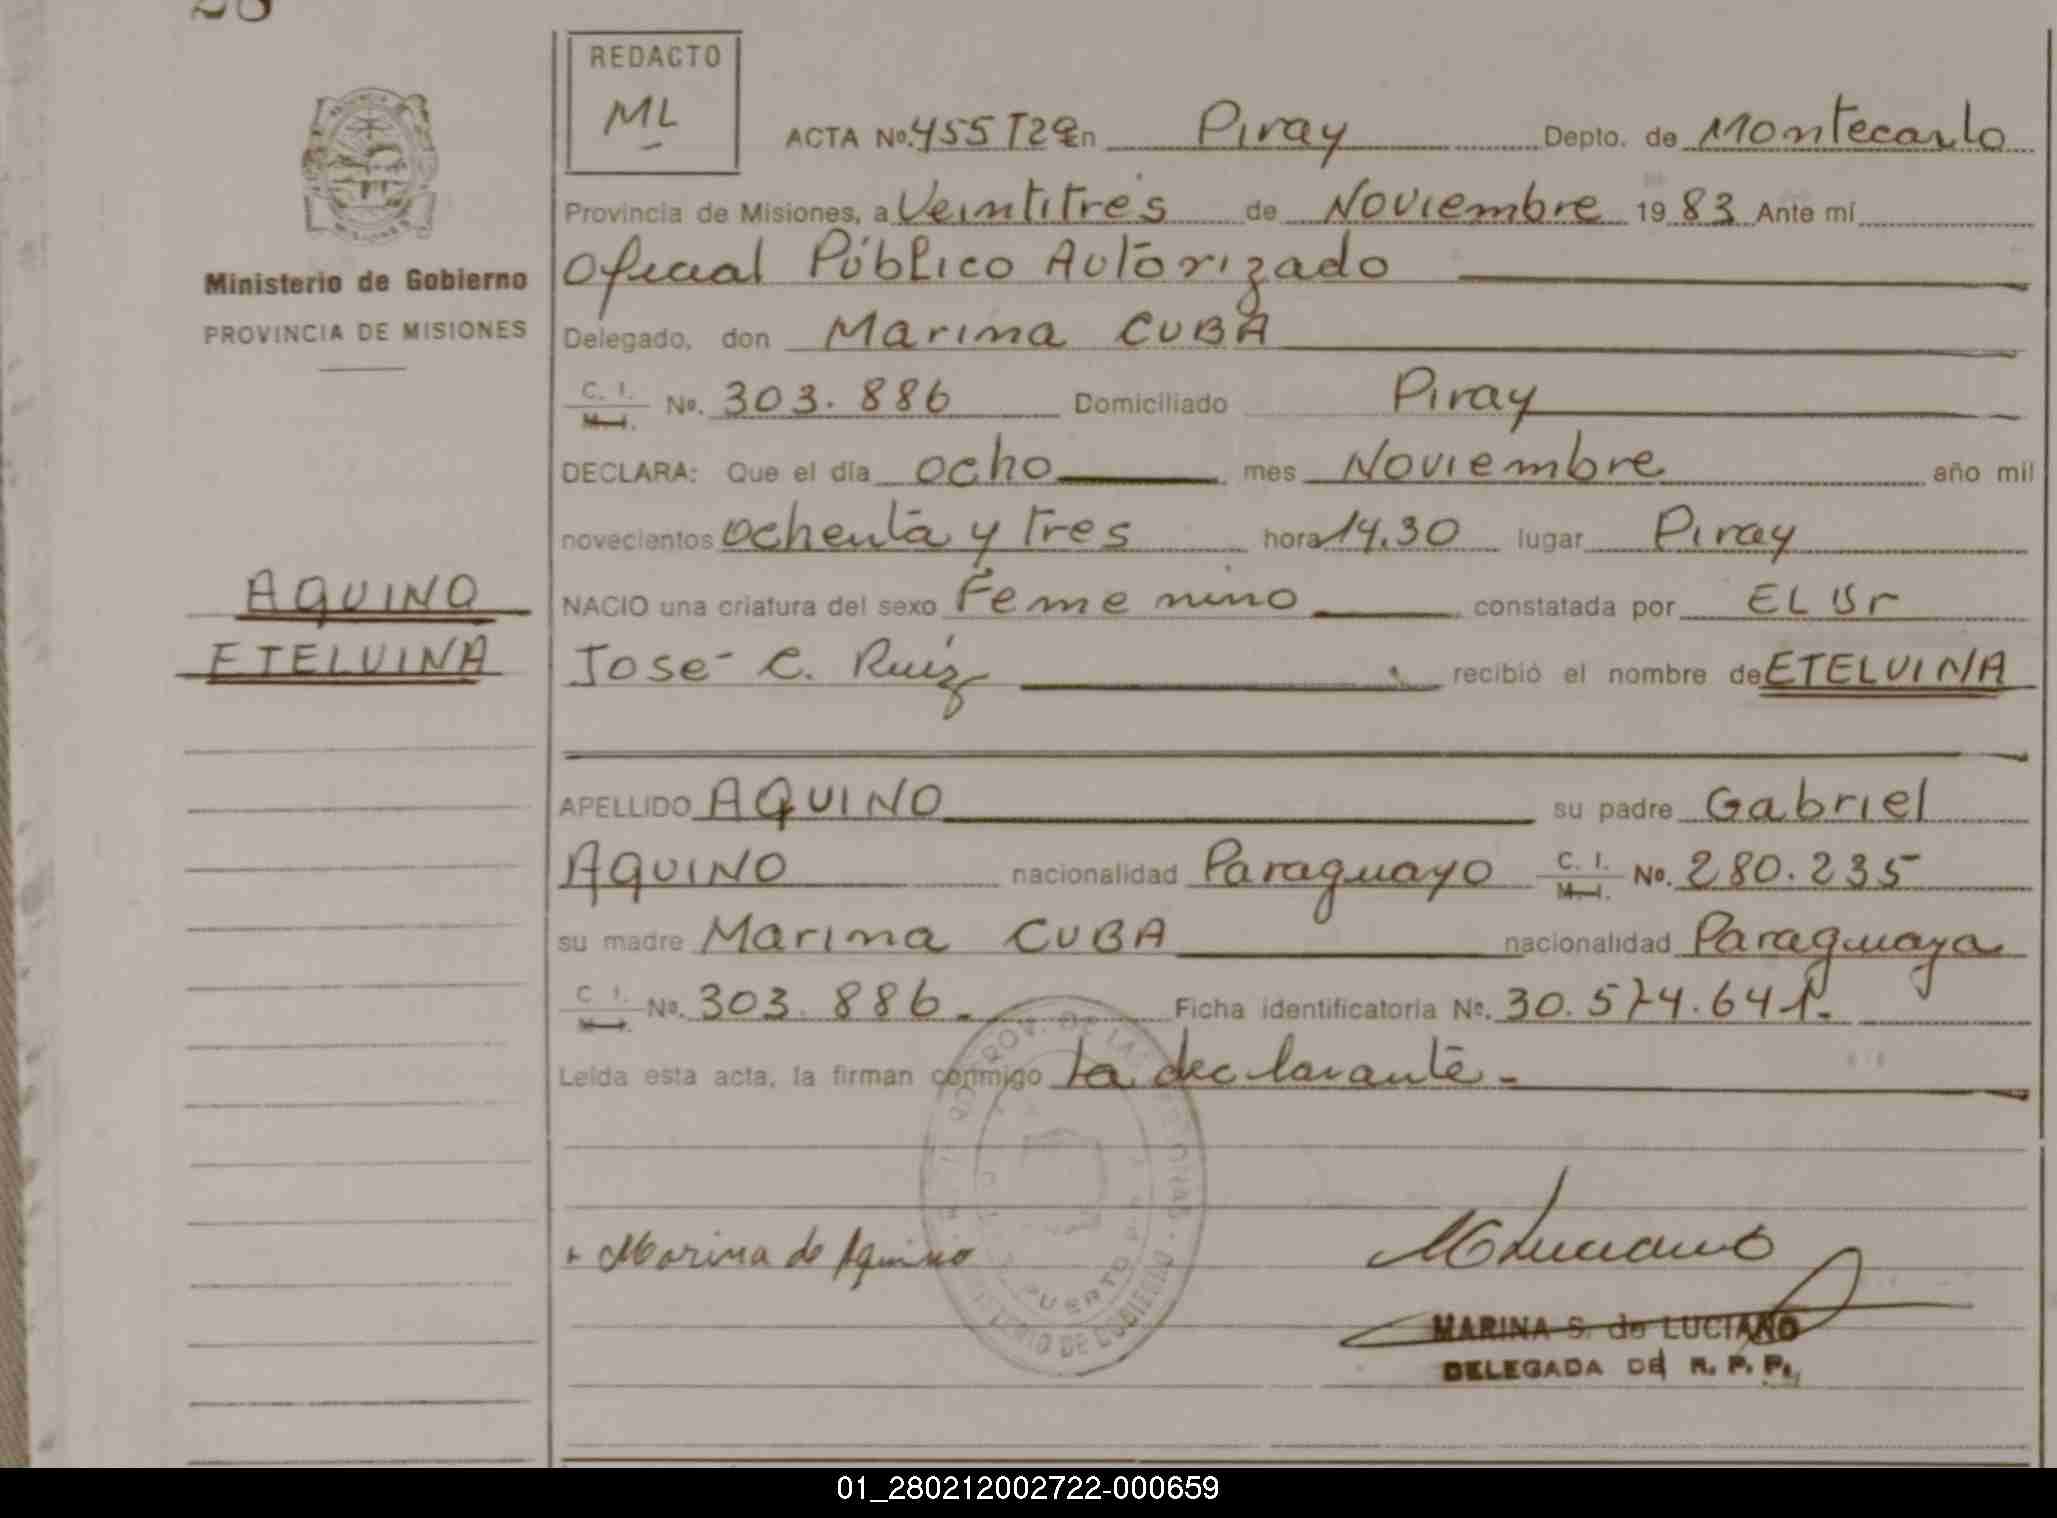 28
REDACTO
ML
ACTA Nº. 455 T2º en Piray Depto. de Montecarlo
Provincia de Misiones, a Veintitres de Noviembre 19 83 Ante mí
Oficial Público Autorizado
Ministerio de Gobierno
PROVINCIA DE MISIONES
Delegado, don Marina CUBA
C. I. M. I. Nº. 303.886 Domiciliado Piray
DECLARA: Que el día ocho mes Noviembre año mil
novecientos ochenta y tres hora 14.30 lugar Piray
AQUINO
NACIO una criatura del sexo Femenino constatada por EL Sr
ETELVINA
José C. Ruíz recibió el nombre de ETELVINA
APELLIDO AQUINO su padre Gabriel
AQUINO nacionalidad Paraguayo C. I. M. I. Nº. 280.235
su madre Marina CUBA nacionalidad Paraguaya
C. I. M. I. Nº. 303.886. Ficha identificatoria Nº. 30.574.641.
Leída esta acta, la firman conmigo La declarante.-
PROV. DE LAS
PUERTO
DE GOBIERNO
Marina de Aquino
MLuciano
MARINA S. de LUCIANO
DELEGADA DE R. P. P.
01_280212002722-000659